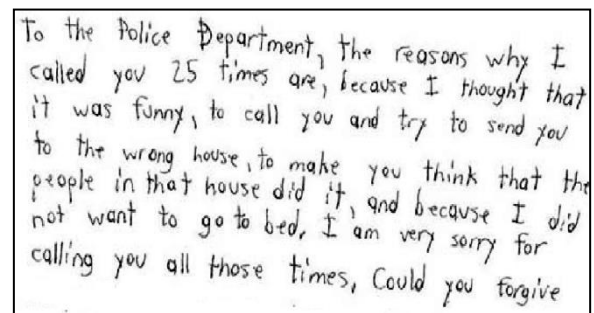 To the Police Department, the reasons why I
called you 25 times are, because I thought that
it was funny, to call you and try to send you
to the wrong house, to make you think that the
people in that house did it, and because I did
not want to go to bed. I am very sorry for
calling you all those times, Could you forgive